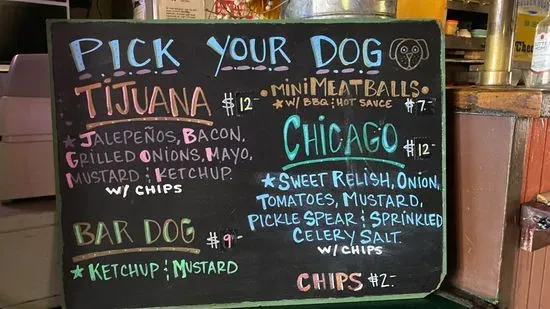 PICK YOUR DOG
TIJUANA $12-
★ JALEPEÑOS, BACON,
GRILLED ONIONS, MAYO,
MUSTARD & KETCHUP.
W/ CHIPS
BAR DOG $9-
★ KETCHUP & MUSTARD
• MINI MEATBALLS •
★ W/ BBQ & HOT SAUCE $7-
CHICAGO $12-
★ SWEET RELISH, ONION,
TOMATOES, MUSTARD,
PICKLE SPEAR & SPRINKLED
CELERY SALT.
W/ CHIPS
CHIPS $2-